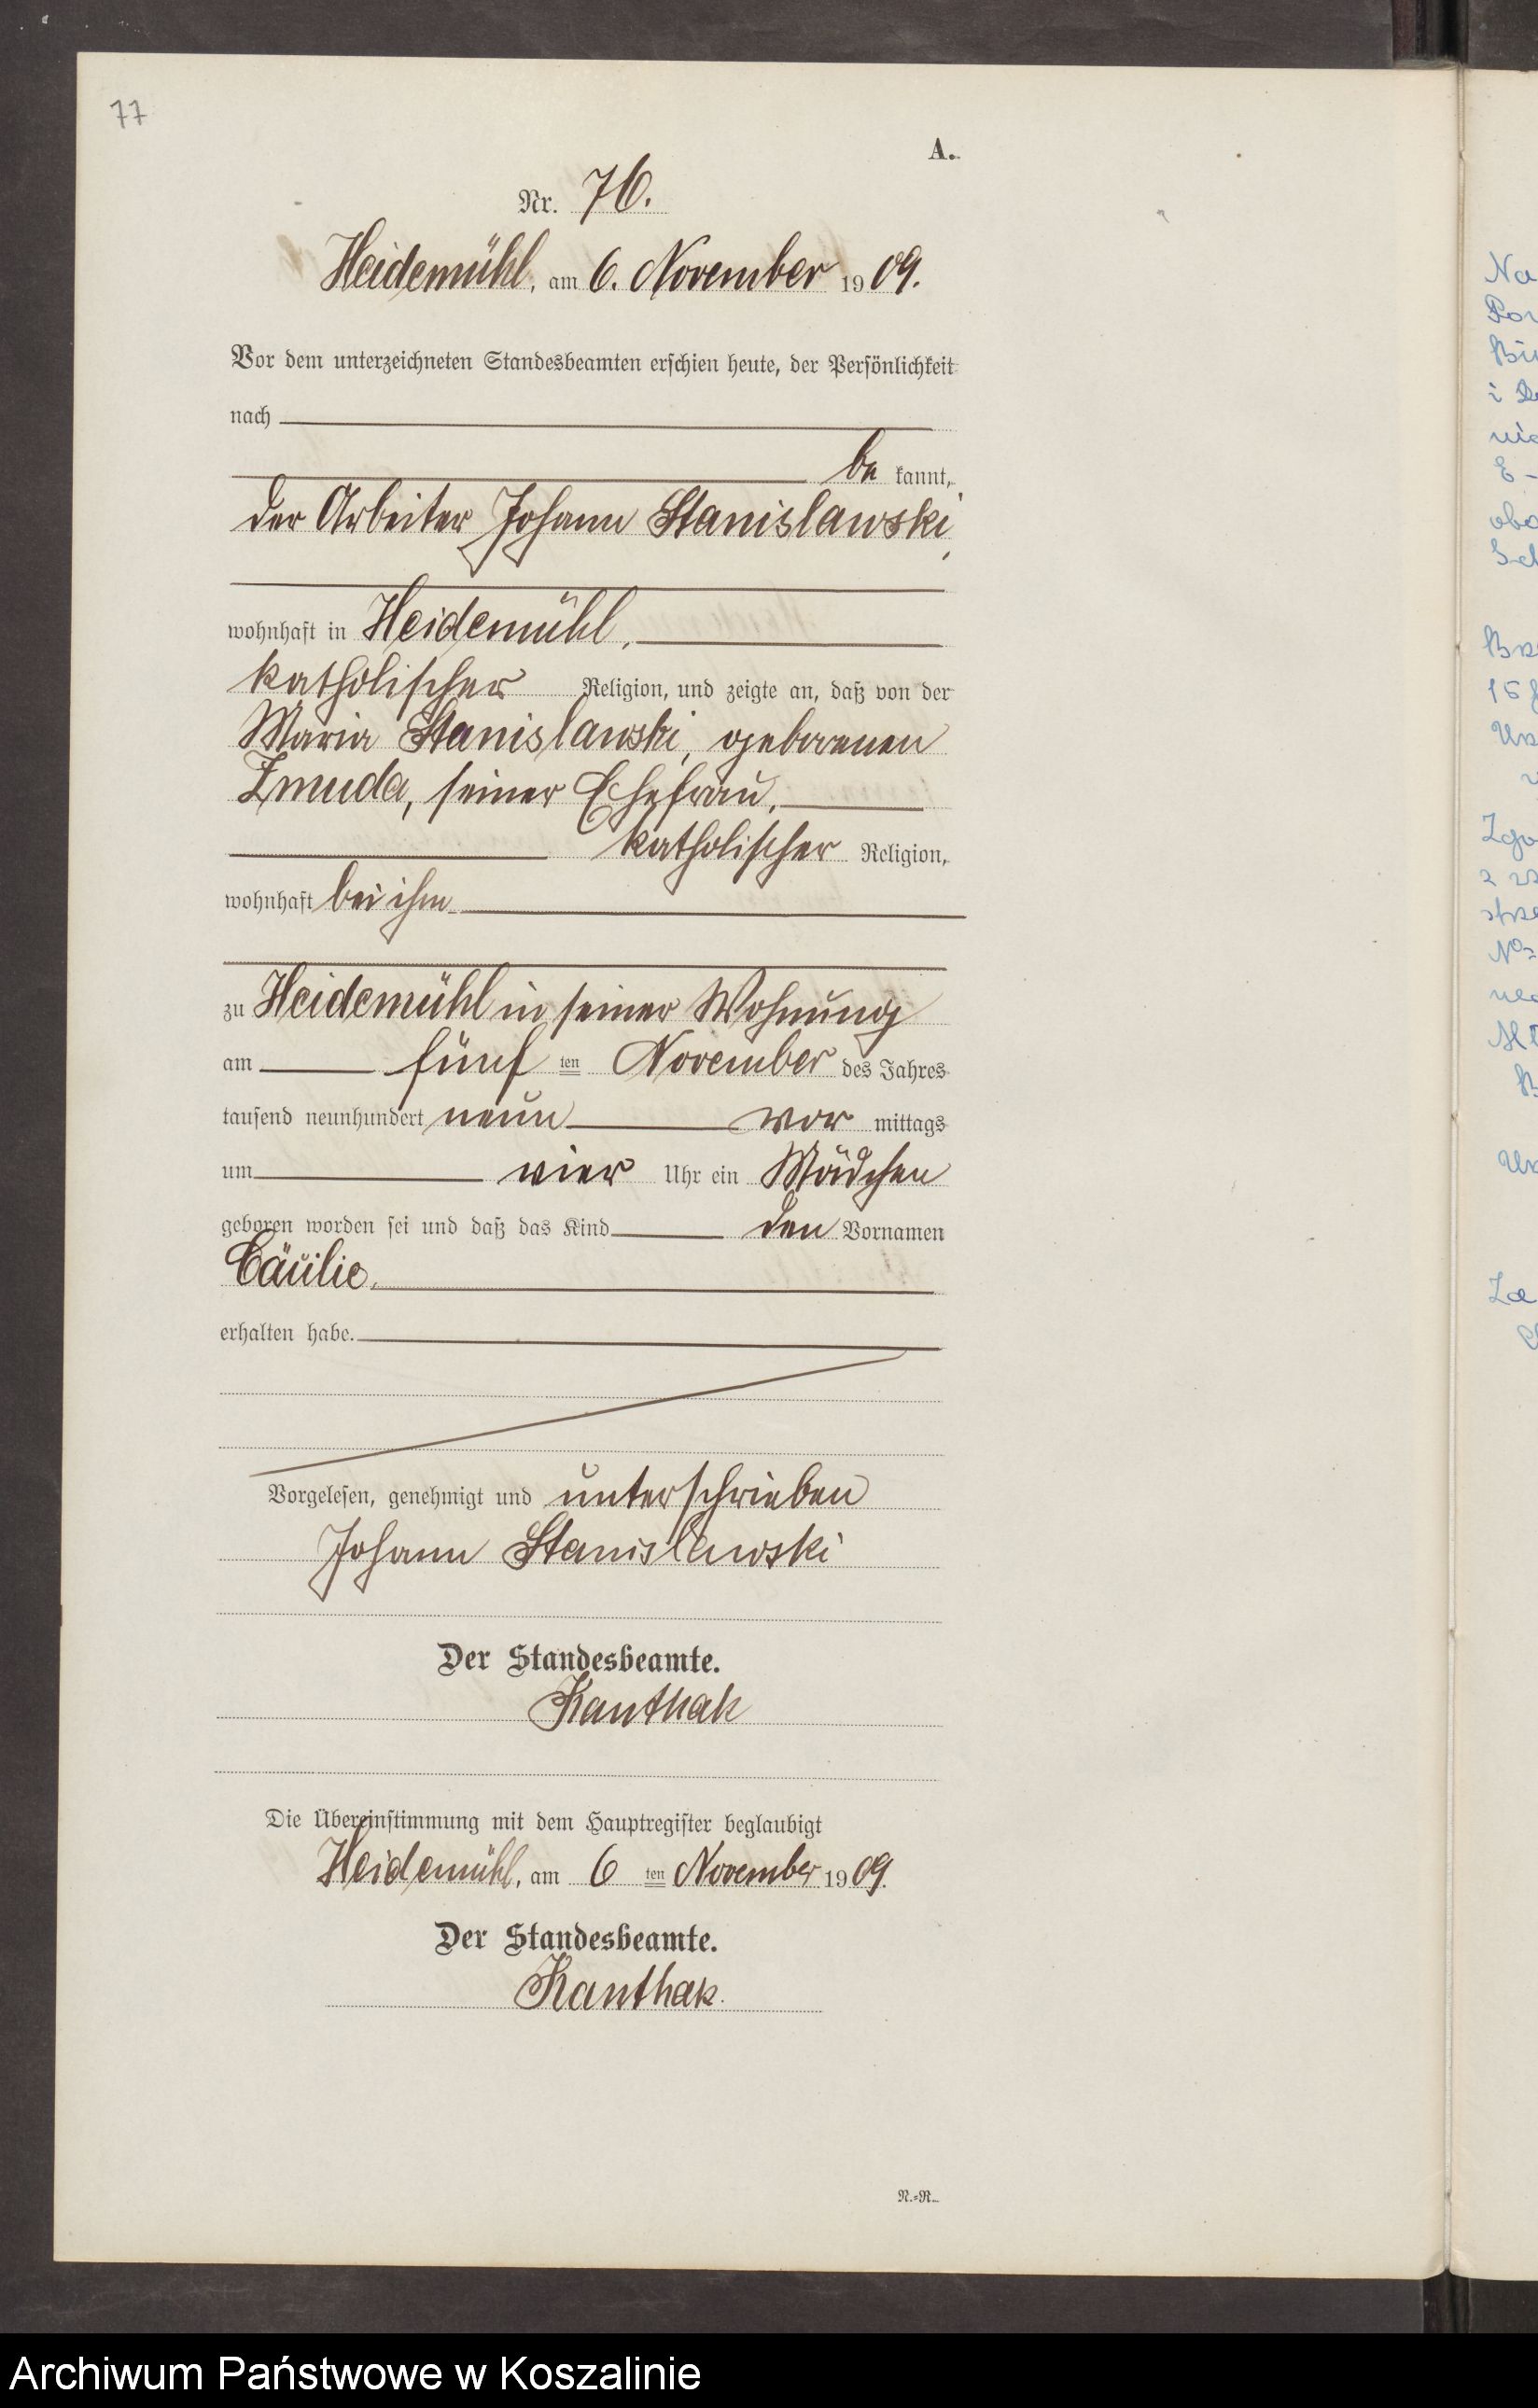 77
A.
Nr. 76.
Heidemühl, am 6. November 1909.
Vor dem unterzeichneten Standesbeamten erschien heute, der Persönlichkeit
nach
be kannt,
der Arbeiter Johann Stanislawski,
wohnhaft in Heidemühl,
katholischer Religion, und zeigte an, daß von der
Maria Stanislawski, geborenen
Zmuda, seiner Ehefrau,
katholischer Religion,
wohnhaft bei ihm
zu Heidemühl in seiner Wohnung
am fünf ten November des Jahres
tausend neunhundert neun vor mittags
um vier Uhr ein Mädchen
geboren worden sei und daß das Kind den Vornamen
Cäcilie,
erhalten habe.
Vorgelesen, genehmigt und unterschrieben
Johann Stanislawski
Der Standesbeamte.
Kanthak
Die Übereinstimmung mit dem Hauptregister beglaubigt
Heidemühl, am 6 ten November 1909.
Der Standesbeamte.
Kanthak.
N.=R.
Archiwum Państwowe w Koszalinie